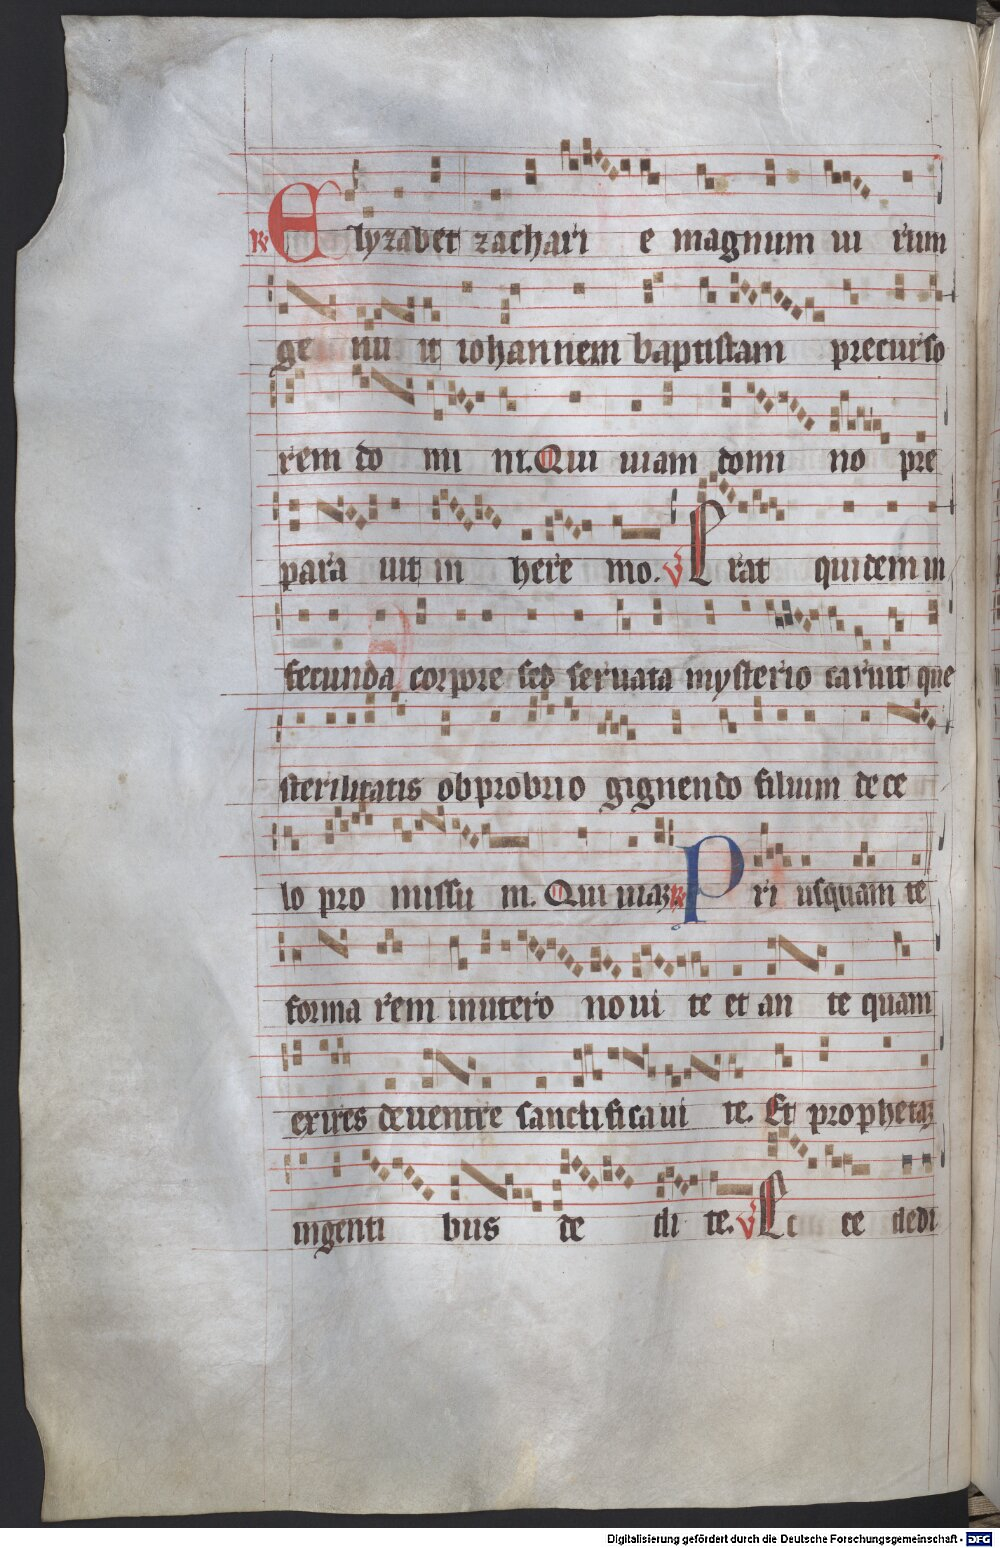 R Elyzabet zachari e magnum ui rum
ge nu it iohannem baptistam precurso
rem do mi ni. Qui uiam domi no pre
para uit in here mo. V Erat quidem in
fecunda corpore sed seruata mysterio caruit que
sterilitatis obprobrio gignendo filium de ce
lo pro missu m. Qui uiaz R Pri usquam te
forma rem inutero no ui te et an te quam
exires deuentre sanctificaui te. Et prophetaz
ingenti bus de di te. V Ec ce dedi
Digitalisierung gefördert durch die Deutsche Forschungsgemeinschaft - DFG